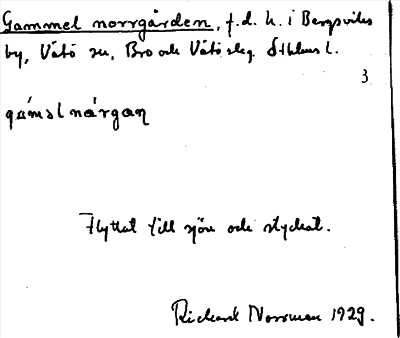 Gammel norrgården, f.d. h. i Bergsviks
by, Vätö sn, Bro och Vätö skg. Sthlms l.
3
gám̀əl nárgan
Flyttat till sjön och styckat.
Richard Norrman 1929.